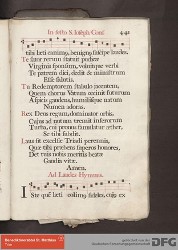 In festo S. Ioseph Conf.
441
tibi læti canimus, benigna suscipe laudes.
Te sator rerum statuit pudicæ
Virginis sponsum, voluitque verbi
Te patrem dici, dedit & ministrum
Esse salutis.
Tu Redemptorem stabulo jacentem,
Quem chorus Vatum cecinit futurum
Aspicis gaudens, humilisque natum
Numen adoras.
Rex Deus regum, dominator orbis,
Cujus ad nutum tremit infernorum
Turba, cui pronus famulatur æther,
Se tibi subdit.
Laus sit excelsæ Triadi perennis,
Quæ tibi præbens superos honores,
Det tuis nobis meritis beatæ
Gaudia vitæ.
Amen.
Ad Laudes Hymnus.
Iste quem læti colimus fideles, cujus ex
DFG